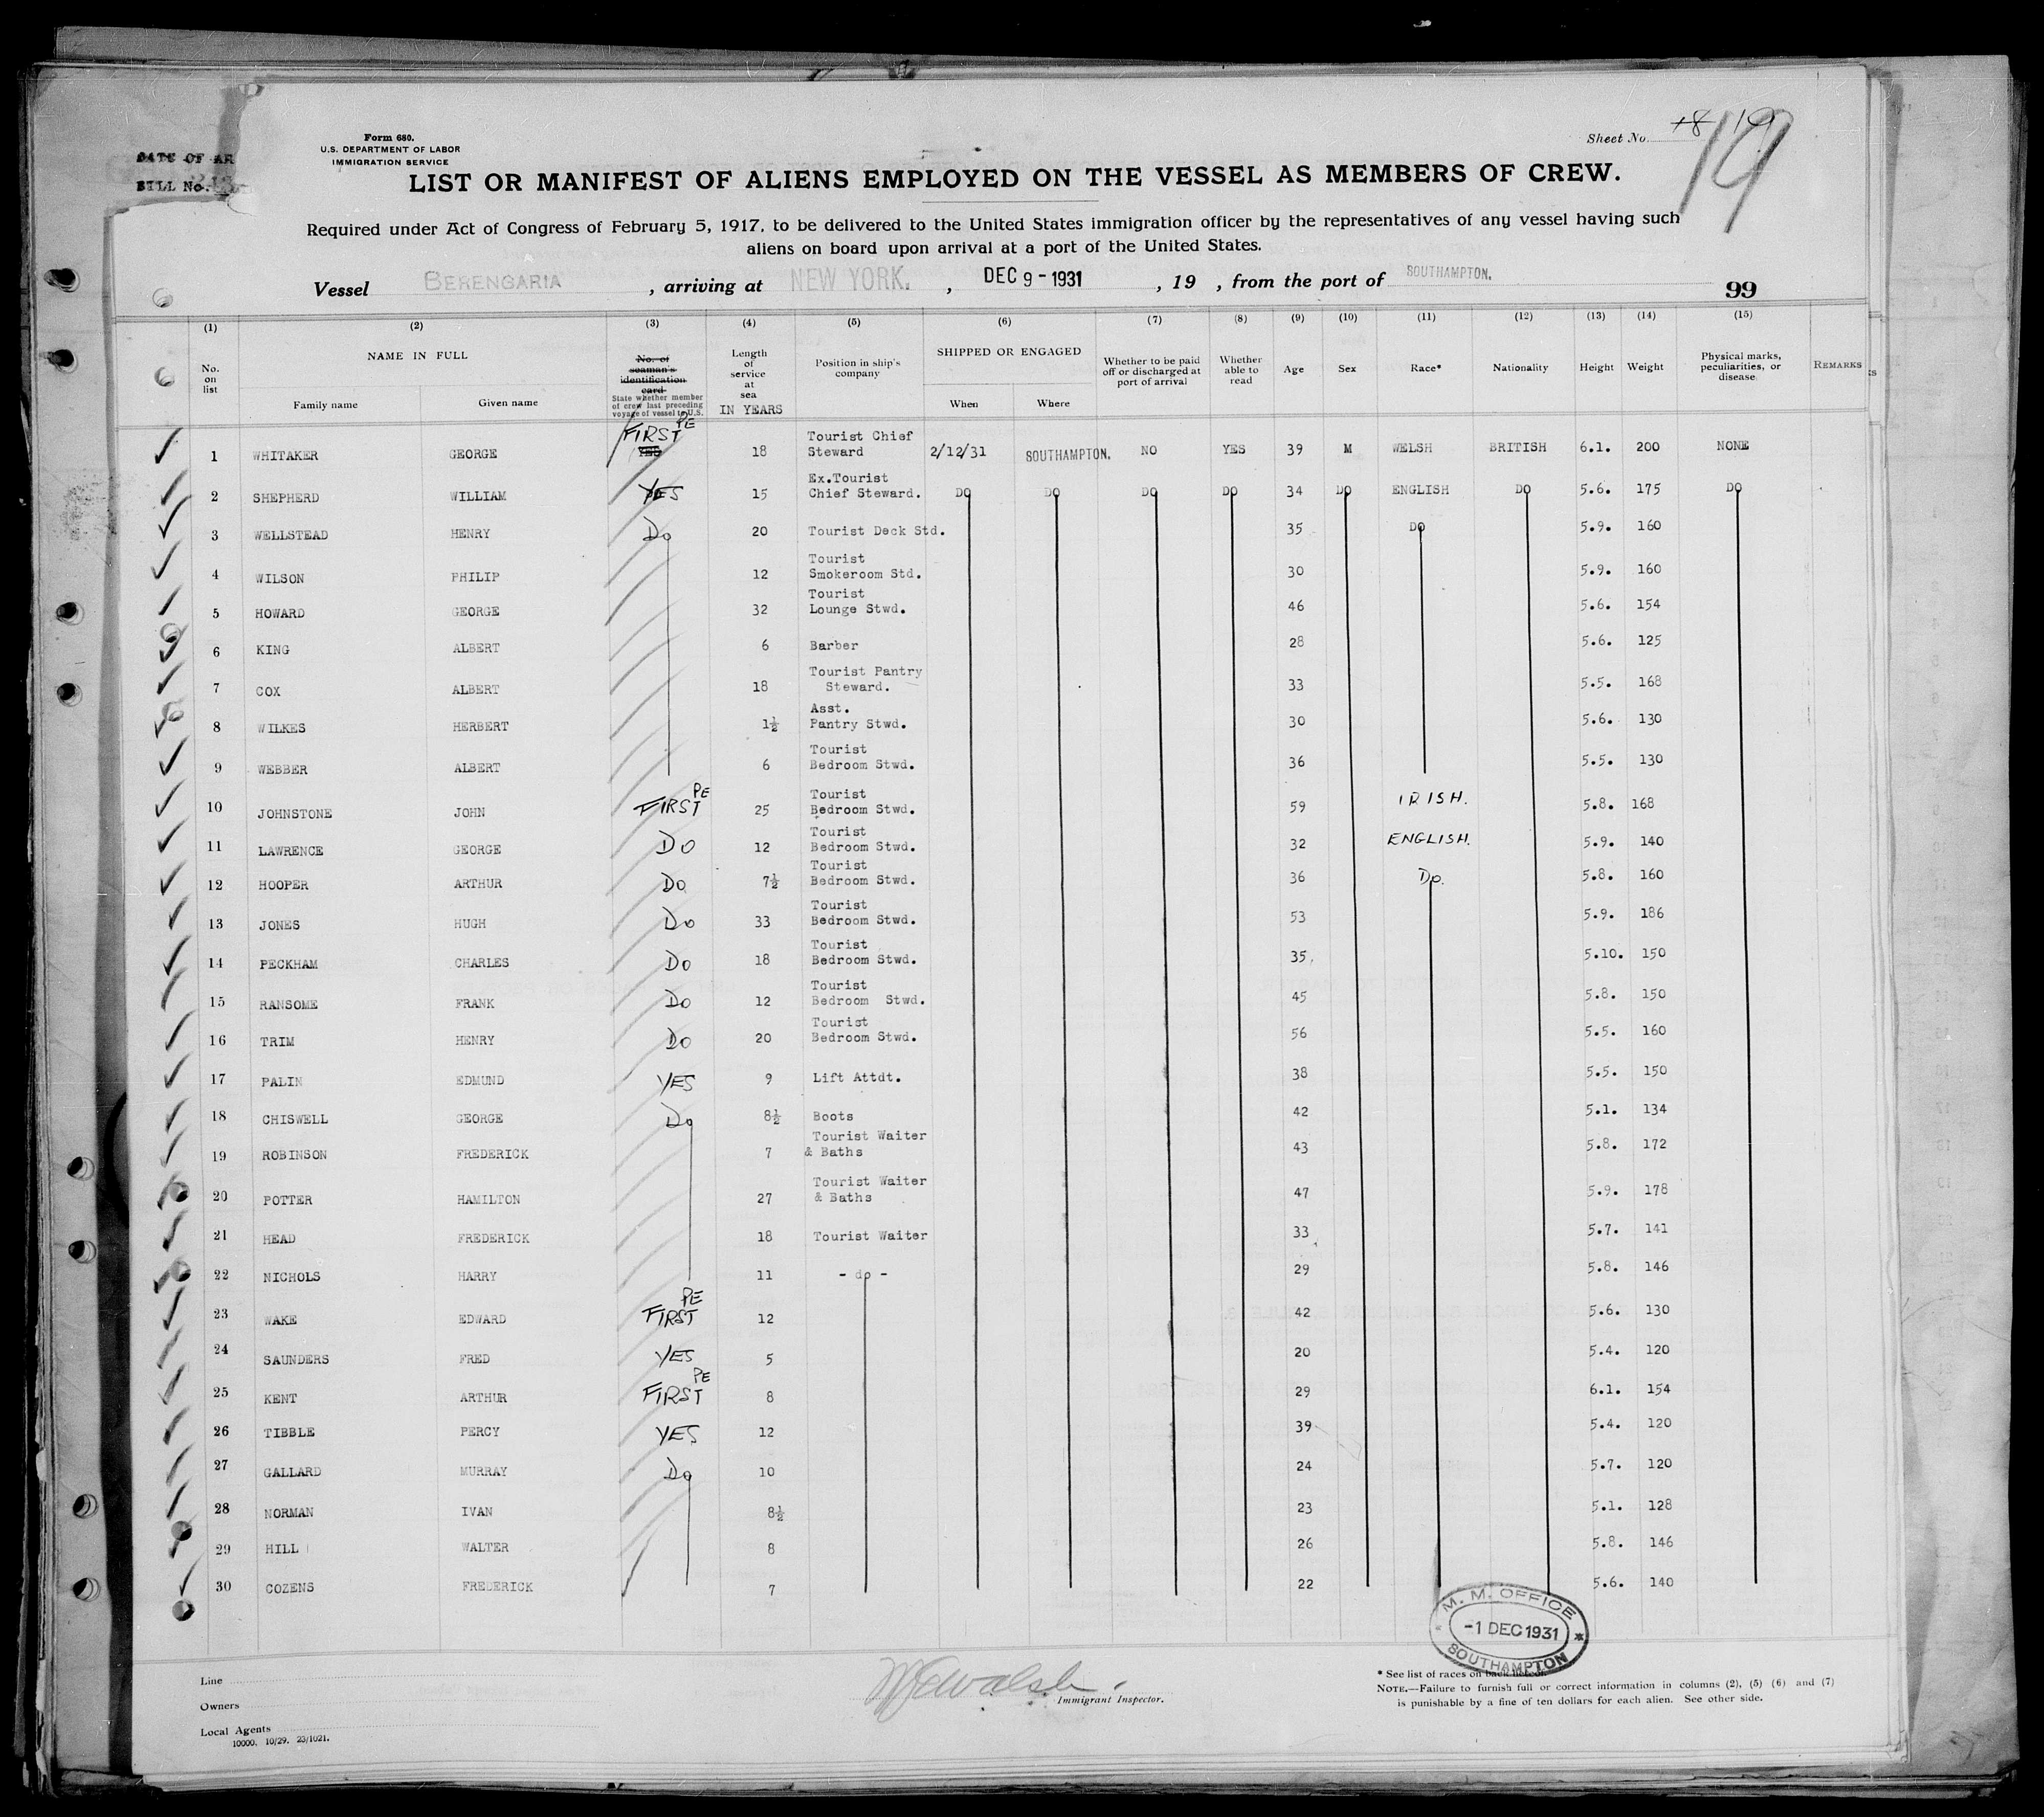 DATE OF AR
BILL No.
Form 680.
U.S. DEPARTMENT OF LABOR
IMMIGRATION SERVICE
Sheet No. 18 19
19
LIST OR MANIFEST OF ALIENS EMPLOYED ON THE VESSEL AS MEMBERS OF CREW.
Required under Act of Congress of February 5, 1917, to be delivered to the United States immigration officer by the representatives of any vessel having such
aliens on board upon arrival at a port of the United States.
Vessel BERENGARIA, arriving at NEW YORK., DEC 9 - 1931, 19 , from the port of SOUTHAMPTON.
99
(1) (2) (3) (4) (5) (6) (7) (8) (9) (10) (11) (12) (13) (14) (15)
No. on list NAME IN FULL Family name Given name No. of seaman's identification card State whether member of crew last preceding voyage of vessel to U.S. Length of service at sea IN YEARS Position in ship's company SHIPPED OR ENGAGED When Where Whether to be paid off or discharged at port of arrival Whether able to read Age Sex Race* Nationality Height Weight Physical marks, peculiarities, or disease REMARKS
1 WHITAKER GEORGE FIRST PE YES 18 Tourist Chief Steward 2/12/31 SOUTHAMPTON. NO YES 39 M WELSH BRITISH 6.1. 200 NONE
2 SHEPHERD WILLIAM YES 15 Ex.Tourist Chief Steward. DO DO DO DO 34 DO ENGLISH DO 5.6. 175 DO
3 WELLSTEAD HENRY Do 20 Tourist Deck Std. 35 DO 5.9. 160
4 WILSON PHILIP 12 Tourist Smokeroom Std. 30 5.9. 160
5 HOWARD GEORGE 32 Tourist Lounge Stwd. 46 5.6. 154
6 KING ALBERT 6 Barber 28 5.6. 125
7 COX ALBERT 18 Tourist Pantry Steward. 33 5.5. 168
8 WILKES HERBERT 1½ Asst. Pantry Stwd. 30 5.6. 130
9 WEBBER ALBERT 6 Tourist Bedroom Stwd. 36 5.5. 130
10 JOHNSTONE JOHN FIRST PE 25 Tourist Bedroom Stwd. 59 IRISH. 5.8. 168
11 LAWRENCE GEORGE DO 12 Tourist Bedroom Stwd. 32 ENGLISH. 5.9. 140
12 HOOPER ARTHUR DO 7½ Tourist Bedroom Stwd. 36 Do. 5.8. 160
13 JONES HUGH Do 33 Tourist Bedroom Stwd. 53 5.9. 186
14 PECKHAM CHARLES Do 18 Tourist Bedroom Stwd. 35 5.10. 150
15 RANSOME FRANK Do 12 Tourist Bedroom Stwd. 45 5.8. 150
16 TRIM HENRY Do 20 Tourist Bedroom Stwd. 56 5.5. 160
17 PALIN EDMUND YES 9 Lift Attdt. 38 5.5. 150
18 CHISWELL GEORGE Do 8½ Boots 42 5.1. 134
19 ROBINSON FREDERICK 7 Tourist Waiter & Baths 43 5.8. 172
20 POTTER HAMILTON 27 Tourist Waiter & Baths 47 5.9. 178
21 HEAD FREDERICK 18 Tourist Waiter 33 5.7. 141
22 NICHOLS HARRY 11 - do - 29 5.8. 146
23 WAKE EDWARD FIRST PE 12 42 5.6. 130
24 SAUNDERS FRED YES 5 20 5.4. 120
25 KENT ARTHUR FIRST PE 8 29 6.1. 154
26 TIBBLE PERCY YES 12 39 5.4. 120
27 GALLARD MURRAY Do 10 24 5.7. 120
28 NORMAN IVAN 8½ 23 5.1. 128
29 HILL WALTER 8 26 5.8. 146
30 COZENS FREDERICK 7 22 5.6. 140
M. M. OFFICE
-1 DEC 1931
SOUTHAMPTON
Line
Owners
Local Agents
10000. 10/29. 23/1021.
Immigrant Inspector.
* See list of races on back hereof.
NOTE.—Failure to furnish full or correct information in columns (2), (5) (6) and (7)
is punishable by a fine of ten dollars for each alien. See other side.